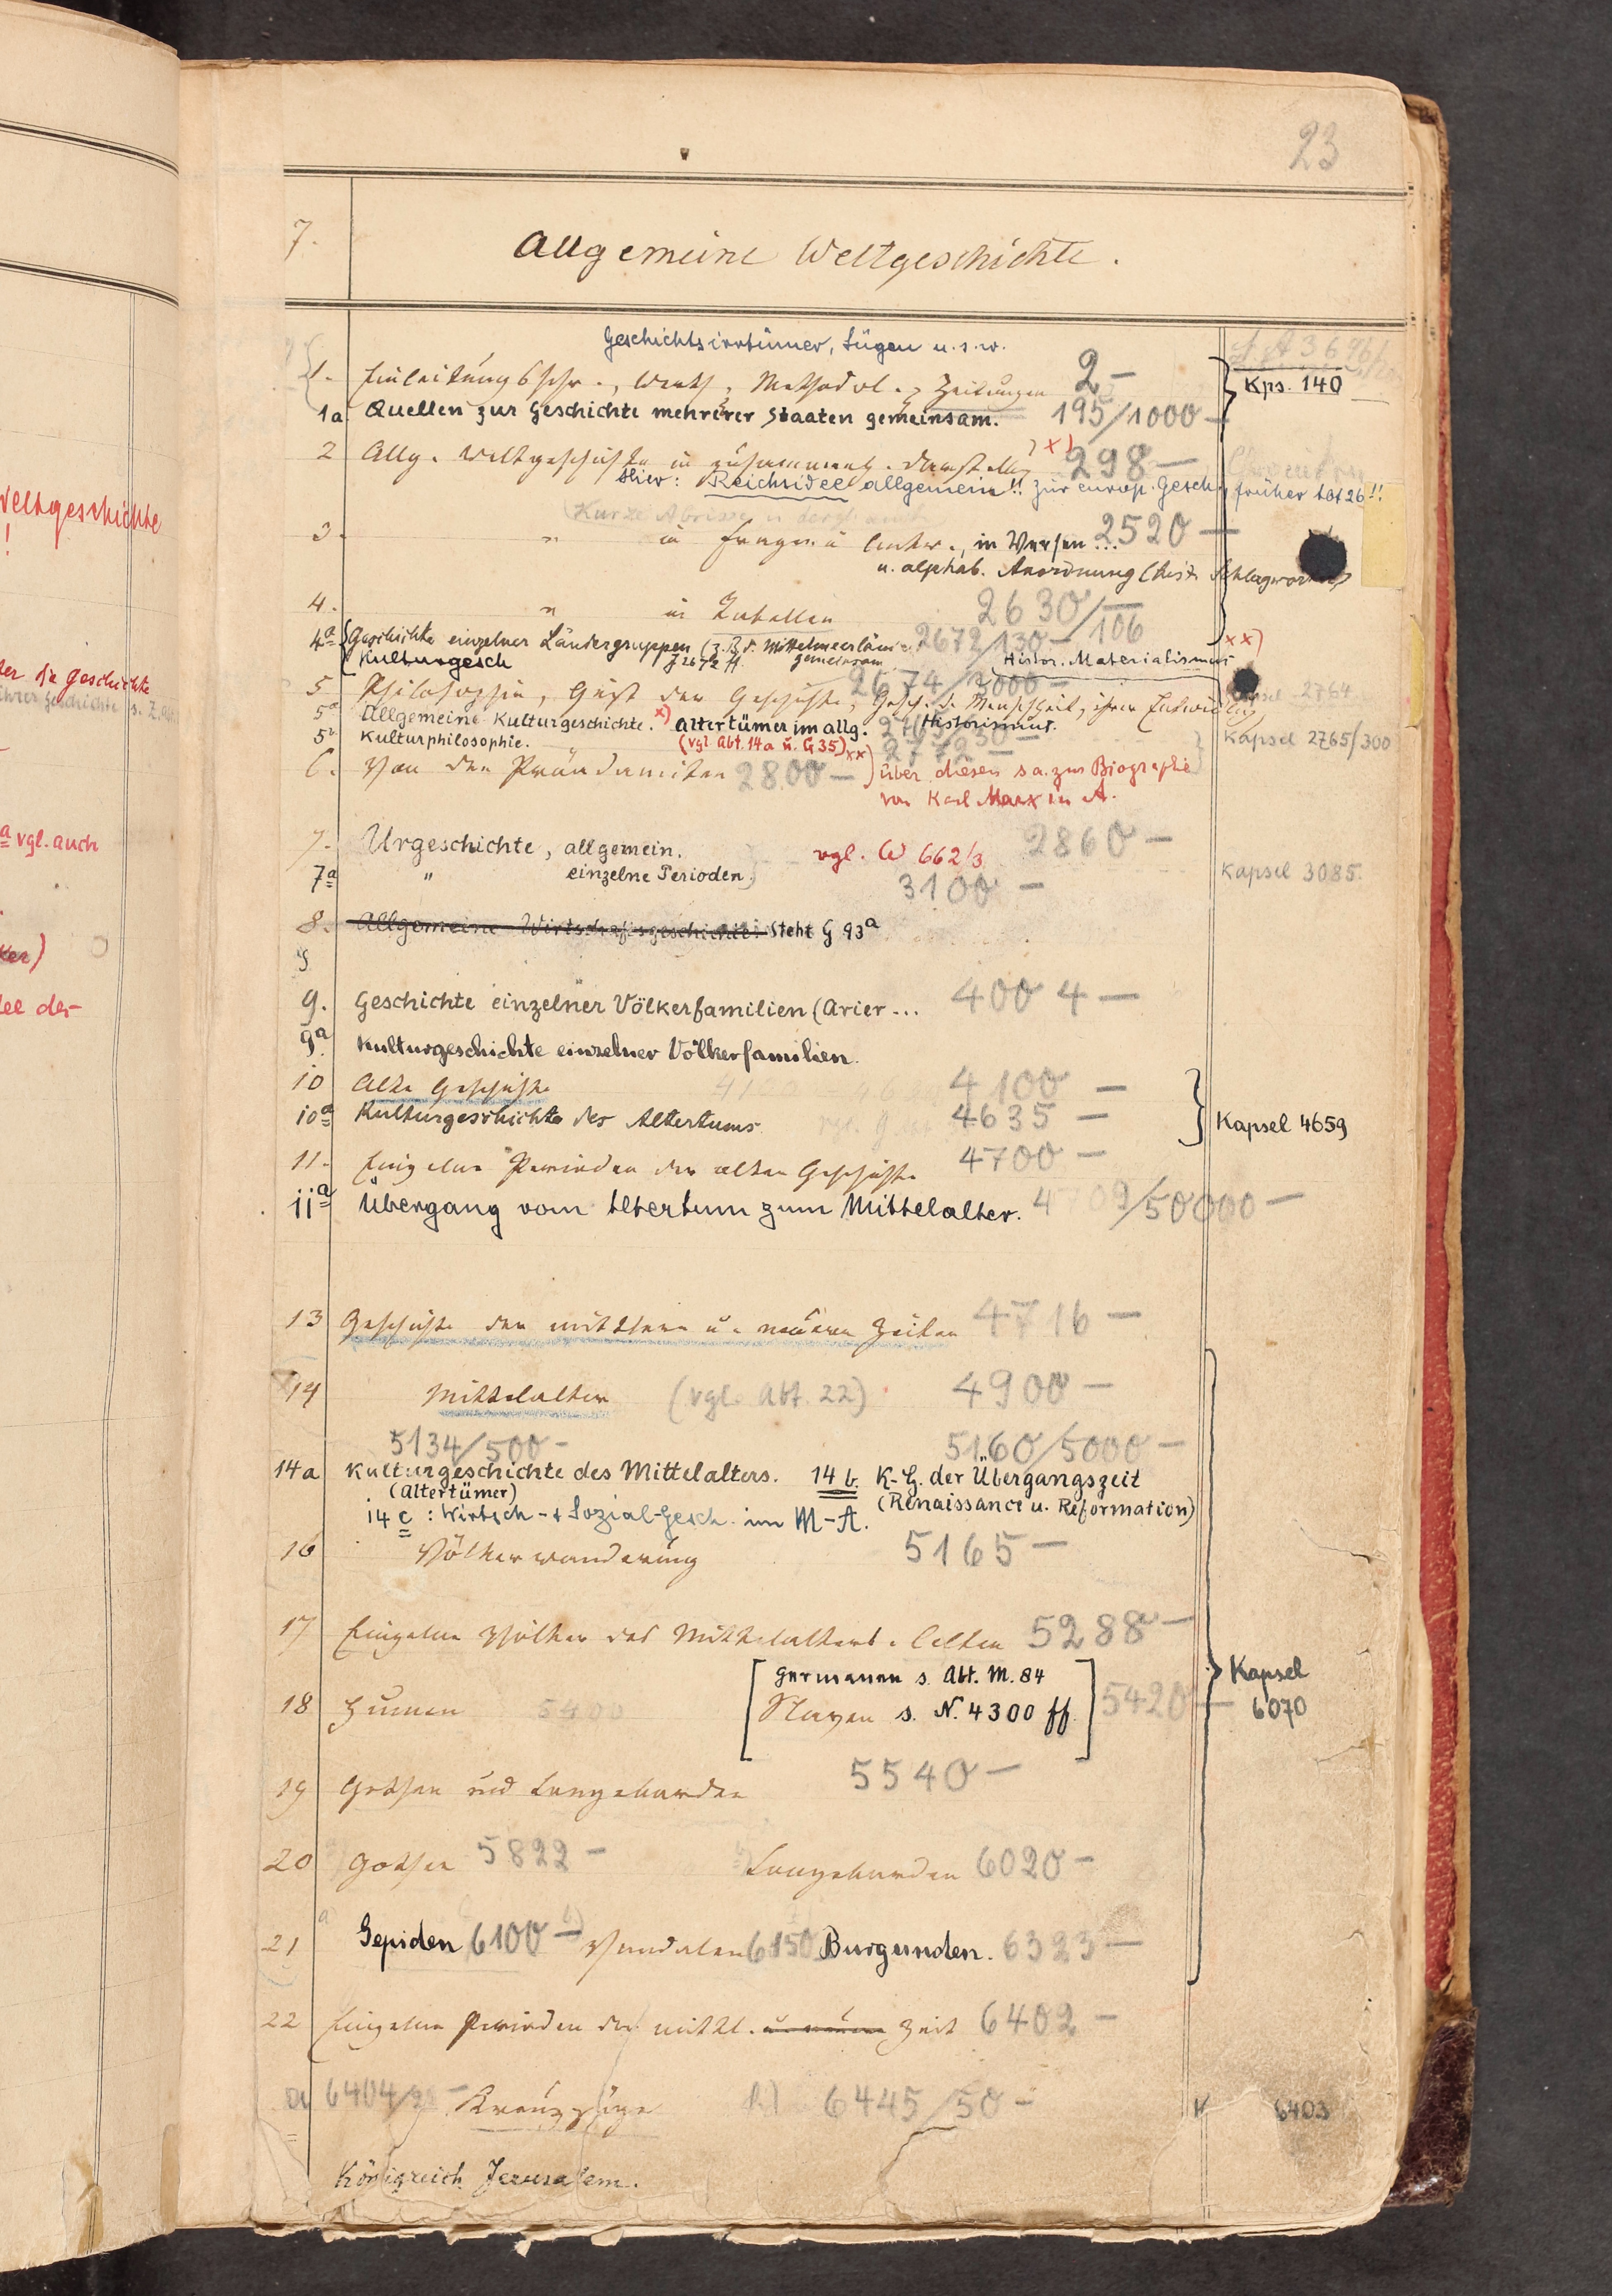 23
7. Allgemeine Weltgeschichte.
Geschichtsirrtümer, Lügen u.s.w.
1. Einleitungsschr., Werth, Methodol., Zeitungen 2 —
Kps. 140
1a Quellen zur Geschichte mehrerer Staaten gemeinsam. 195/1000 —
2 Allg. Weltgeschichte in zusammenh. Darstellg x) 298 —
Hier: Reichsidee allgemein!! Zur europ. Gesch. früher tot 26!!
(Kurze Abrisse u. dergl.
3. " in Fragen u Antw., in Versen ... 2520 —
u. alphab. Anordnung (hist. Schlagwort
4. " in Tabellen 2630/106
4a Geschichte einzelner Ländergruppen (z.B. d. Mittelmeerländer 2672/130 — xx)
Kulturgesch J 2672 ff. gemeinsam Histor. Materialismus
5 Philosophie, Geist der Geschichte, Gesch. d. Menschheit, ihrer Entwicklg 2674/3000 — 2764
5a Allgemeine Kulturgeschichte. x) Altertümer im allg. Historismus.
5b Kulturphilosophie. (vgl. Abt. 14a u. G 35) xx) 2772 — Kapsel 2765/300
6. Von den Präadamiten 2800 — über diesen s a. zur Biographie
von Karl Marx in A.
7. Urgeschichte, allgemein. vgl. W 662/3 2860 —
7a " einzelne Perioden. 3100 — Kapsel 3085.
8. Allgemeine Wirtschaftsgeschichte: steht G 93a
9. Geschichte einzelner Völkerfamilien (Arier ... 4004 —
9a. Kulturgeschichte einzelner Völkerfamilien.
10 Alte Geschichte 4100 —
10a Kulturgeschichte des Altertums. 4635 — Kapsel 4659
11. Einzelne Perioden der alten Geschichte 4700 —
11a Übergang vom Altertum zum Mittelalter. 4709/50000 —
13 Geschichte der mittlern u. neueren Zeiten 4716 —
14 Mittelalter (vgl. Abt. 22) 4900 —
5134/500 — 5160/5000 —
14a Kulturgeschichte des Mittelalters. 14 b. K-G. der Übergangszeit
(Altertümer) (Renaissance u. Reformation)
14 c : Wirtsch- + Sozial-Gesch. im M-A.
16 Völkerwanderung 5165 —
17 Einzelne Völker des Mittelalters. Celten 5288 —
[Germanen s. Abt. M. 84
18 Hunnen 5400 Slaven s. N. 4300 ff.] 5420 — Kapsel 6070
19 Gothen und Langobarden 5540 —
20 Gothen 5822 — Langobarden 6020 —
21 a) Gepiden 6100 — b) Vandalen 6150 Burgunden. 6323 —
22 Einzelne Perioden der mittl. u. neuen Zeit 6402 —
a 6404/ — Kreuzzüge b) 6445/50 — 6403
Königreich Jerusalem.
Weltgeschichte
!
der die Geschichte
ihrer Geschichte s. Z.
a vgl. auch